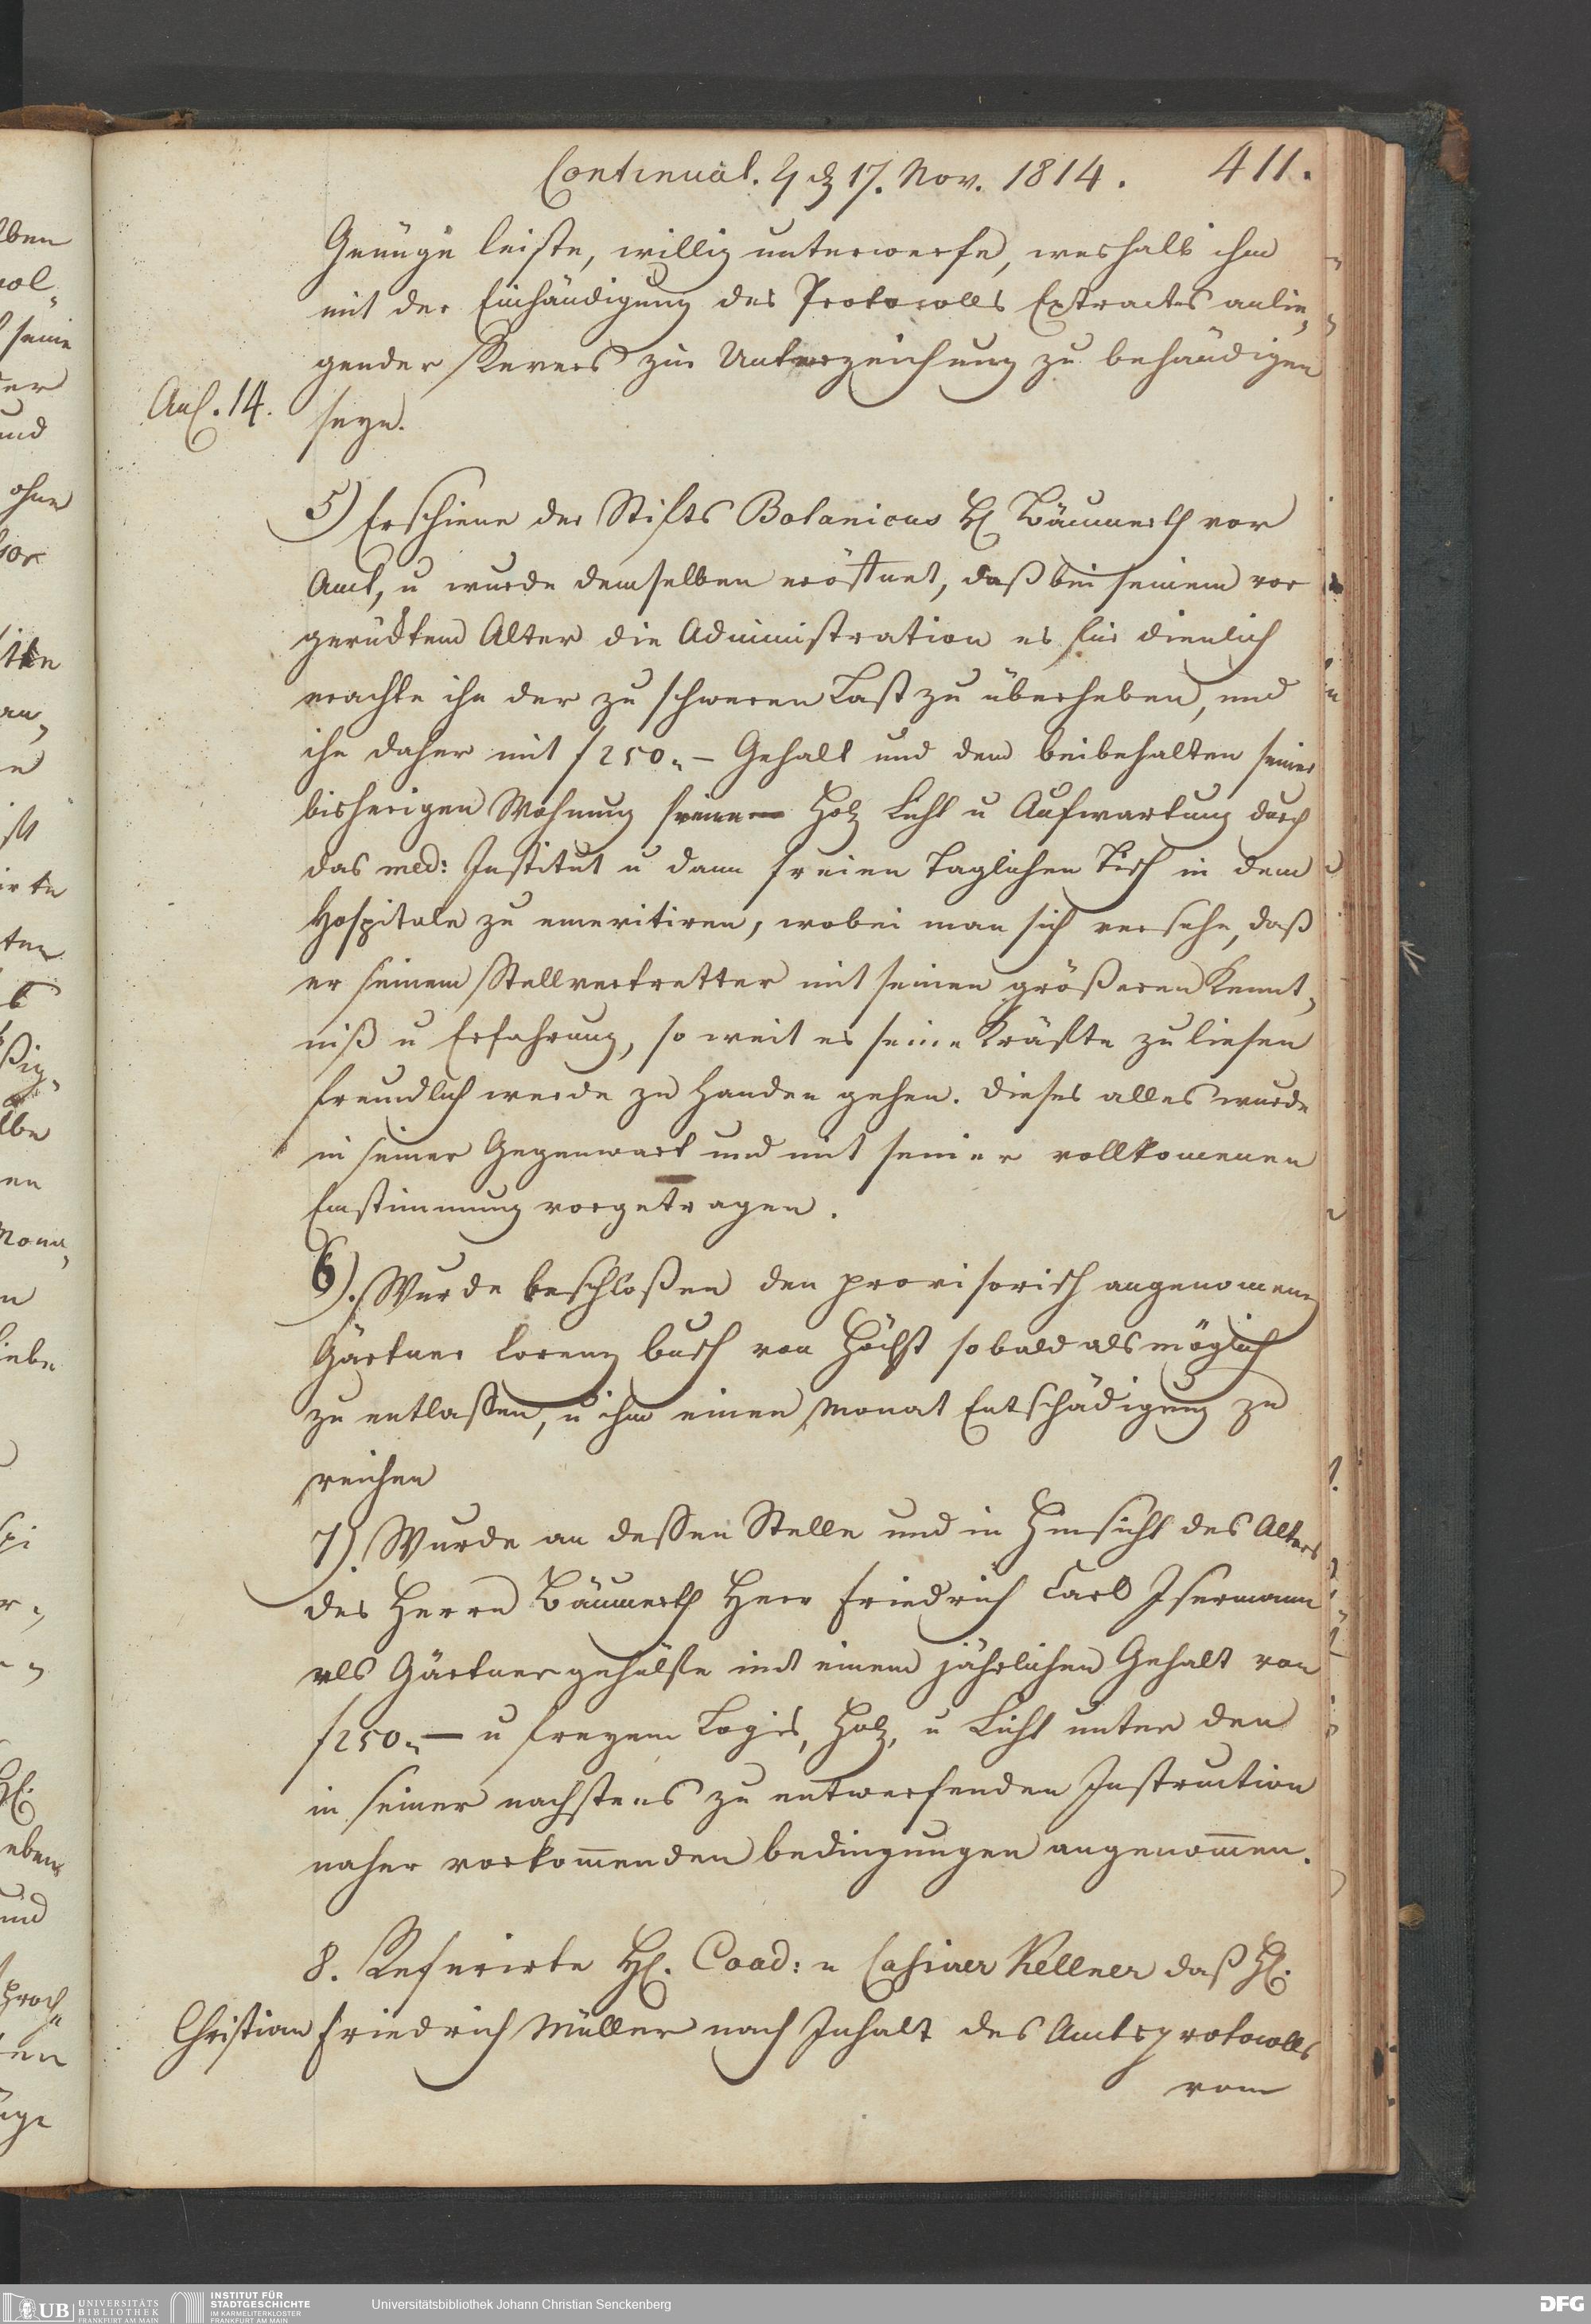 Continuat. 4 d 17. Nov. 1814. 411.
Genüge leiste, willig unterwerfe, weshalb ihm
mit der Einhändigung des Protocolls Extractes anlie„
gender Revers zur Unterzeichnung zu behändigen
Anl. 14.
seyn.
5) Erschiene der Stifts Botanicus H Bäumerth vor
Amt, u wurde demselben eröffnet, daß bei seinem vor
gerücktem Alter die Administration es für dienlich
erachte ihn der zu schweren Last zu überheben, und
ihn daher mit f 250„ – Gehalt und dem beibehalten seiner
bisherigen Wohnung seine Holz Licht u Aufwartung durch
das med: Institut u dann freien taglichen Tisch in dem
Hospitale zu emeritiren, wobei man sich versehe, daß
er seinem Stellvertretter mit seinen größeren Kennt„
niß u Erfahrung, so weit es seine Kräfte zuliesen
freundlich werde zu Handen gehen. Dieses alles wurde
in seiner Gegenwart und mit seiner vollkomenen
Einstimmung vorgetragen.
6). Wurde beschloßen den provisorisch angenomenen
Gärtner Lorenz Busch von Höchst sobald als möglich
zu entlassen, u ihm einen Monat Entschädigung zu
reichen
7). Wurde an dessen Stelle und in Hinsicht des Alters
des Herrn Bäumerth Herr Friedrich Carl Isermann
als Gärtnergehülfe mit einem jährlichen Gehalt von
f 250„ – u freyem Logis, Holz, u Licht unter den
in seiner nachstens zu entwerfenden Instruction
naher vorkom̄enden bedingungen angenom̄en.
8. Referirte H. Coad: u Cassirer Kellner daß H.
Christian Friedrich Müller nach Inhalt des Amtsprotocolls
vom
UB UNIVERSITÄTS BIBLIOTHEK FRANKFURT AM MAIN
INSTITUT FÜR STADTGESCHICHTE IM KARMELITERKLOSTER FRANKFURT AM MAIN
Universitätsbibliothek Johann Christian Senckenberg
DFG